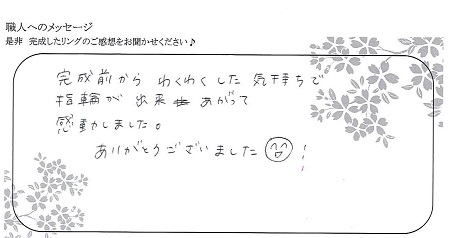 職人へのメッセージ
是非 完成したリングのご感想をお聞かせください♪
完成前から わくわくした 気持ちで
指輪が 出来 あがって
感動しました。
ありがとうございました!